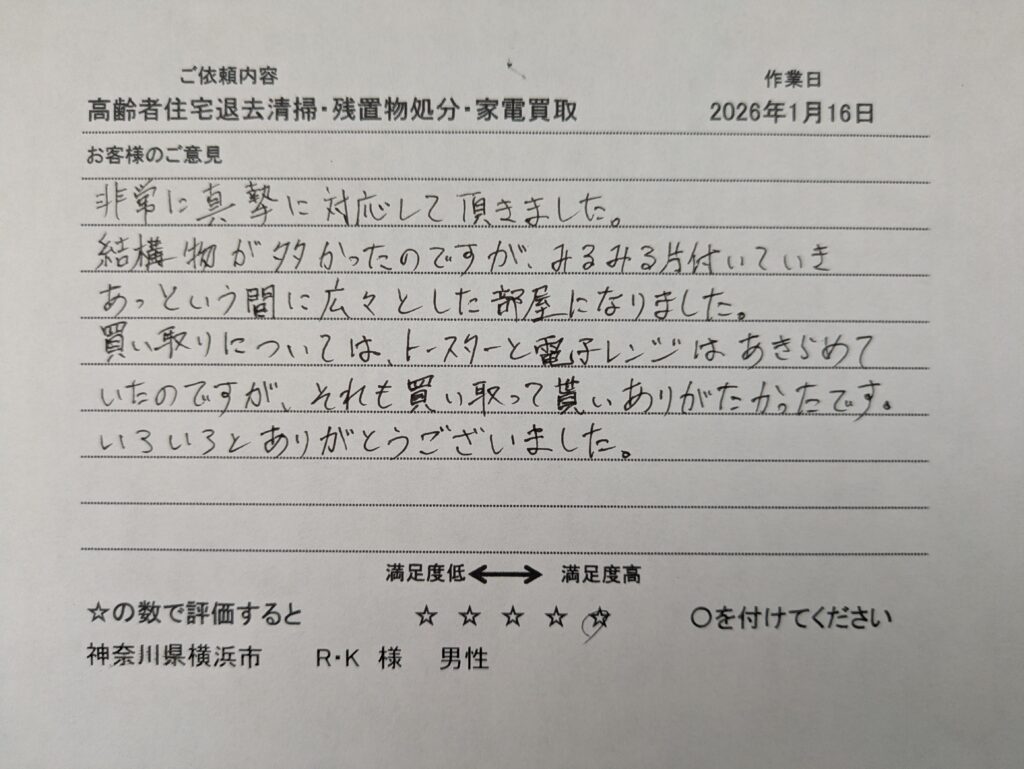 ご依頼内容 作業日
高齢者住宅退去清掃・残置物処分・家電買取 2026年1月16日
お客様のご意見
非常に真摯に対応して頂きました。
結構物が多かったのですが、みるみる片付いていき
あっという間に広々とした部屋になりました。
買い取りについては、トースターと電子レンジはあきらめて
いたのですが、それも買い取って貰いありがたかったです。
いろいろとありがとうございました。
満足度低 ⟷ 満足度高
☆の数で評価すると ☆ ☆ ☆ ☆ ☆ 〇を付けてください
神奈川県横浜市 R・K 様 男性